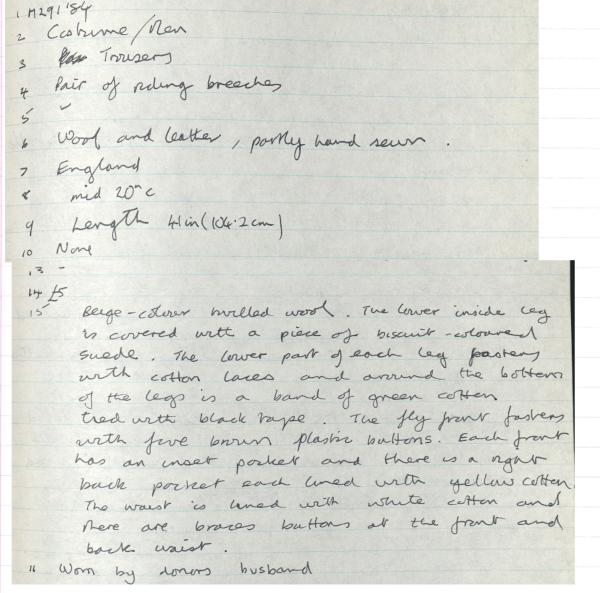 1 M291'84
2 Costume/Men
3 Trousers
4 Pair of riding breeches
5 ✓
6 Wool and leather, partly hand sewn.
7 England
8 mid 20th c
9 Length 41in (104.2cm)
10 None
13 -
14 £5
15 Beige-colour twilled wool. The lower inside leg
is covered with a piece of biscuit-coloured
suede. The lower part of each leg fastens
with cotton laces and around the bottom
of the legs is a band of green cotton
tied with black tape. The fly front fastens
with five brown plastic buttons. Each front
has an inset pocket and there is a right
back pocket each lined with yellow cotton.
The waist is lined with white cotton and
there are braces buttons at the front and
back waist.
16 Worn by donors husband